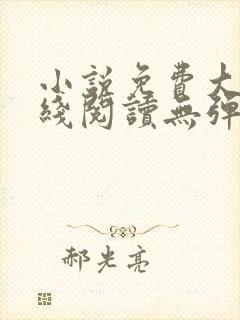 小說免費大
綫閱讀無彈
郝光亮